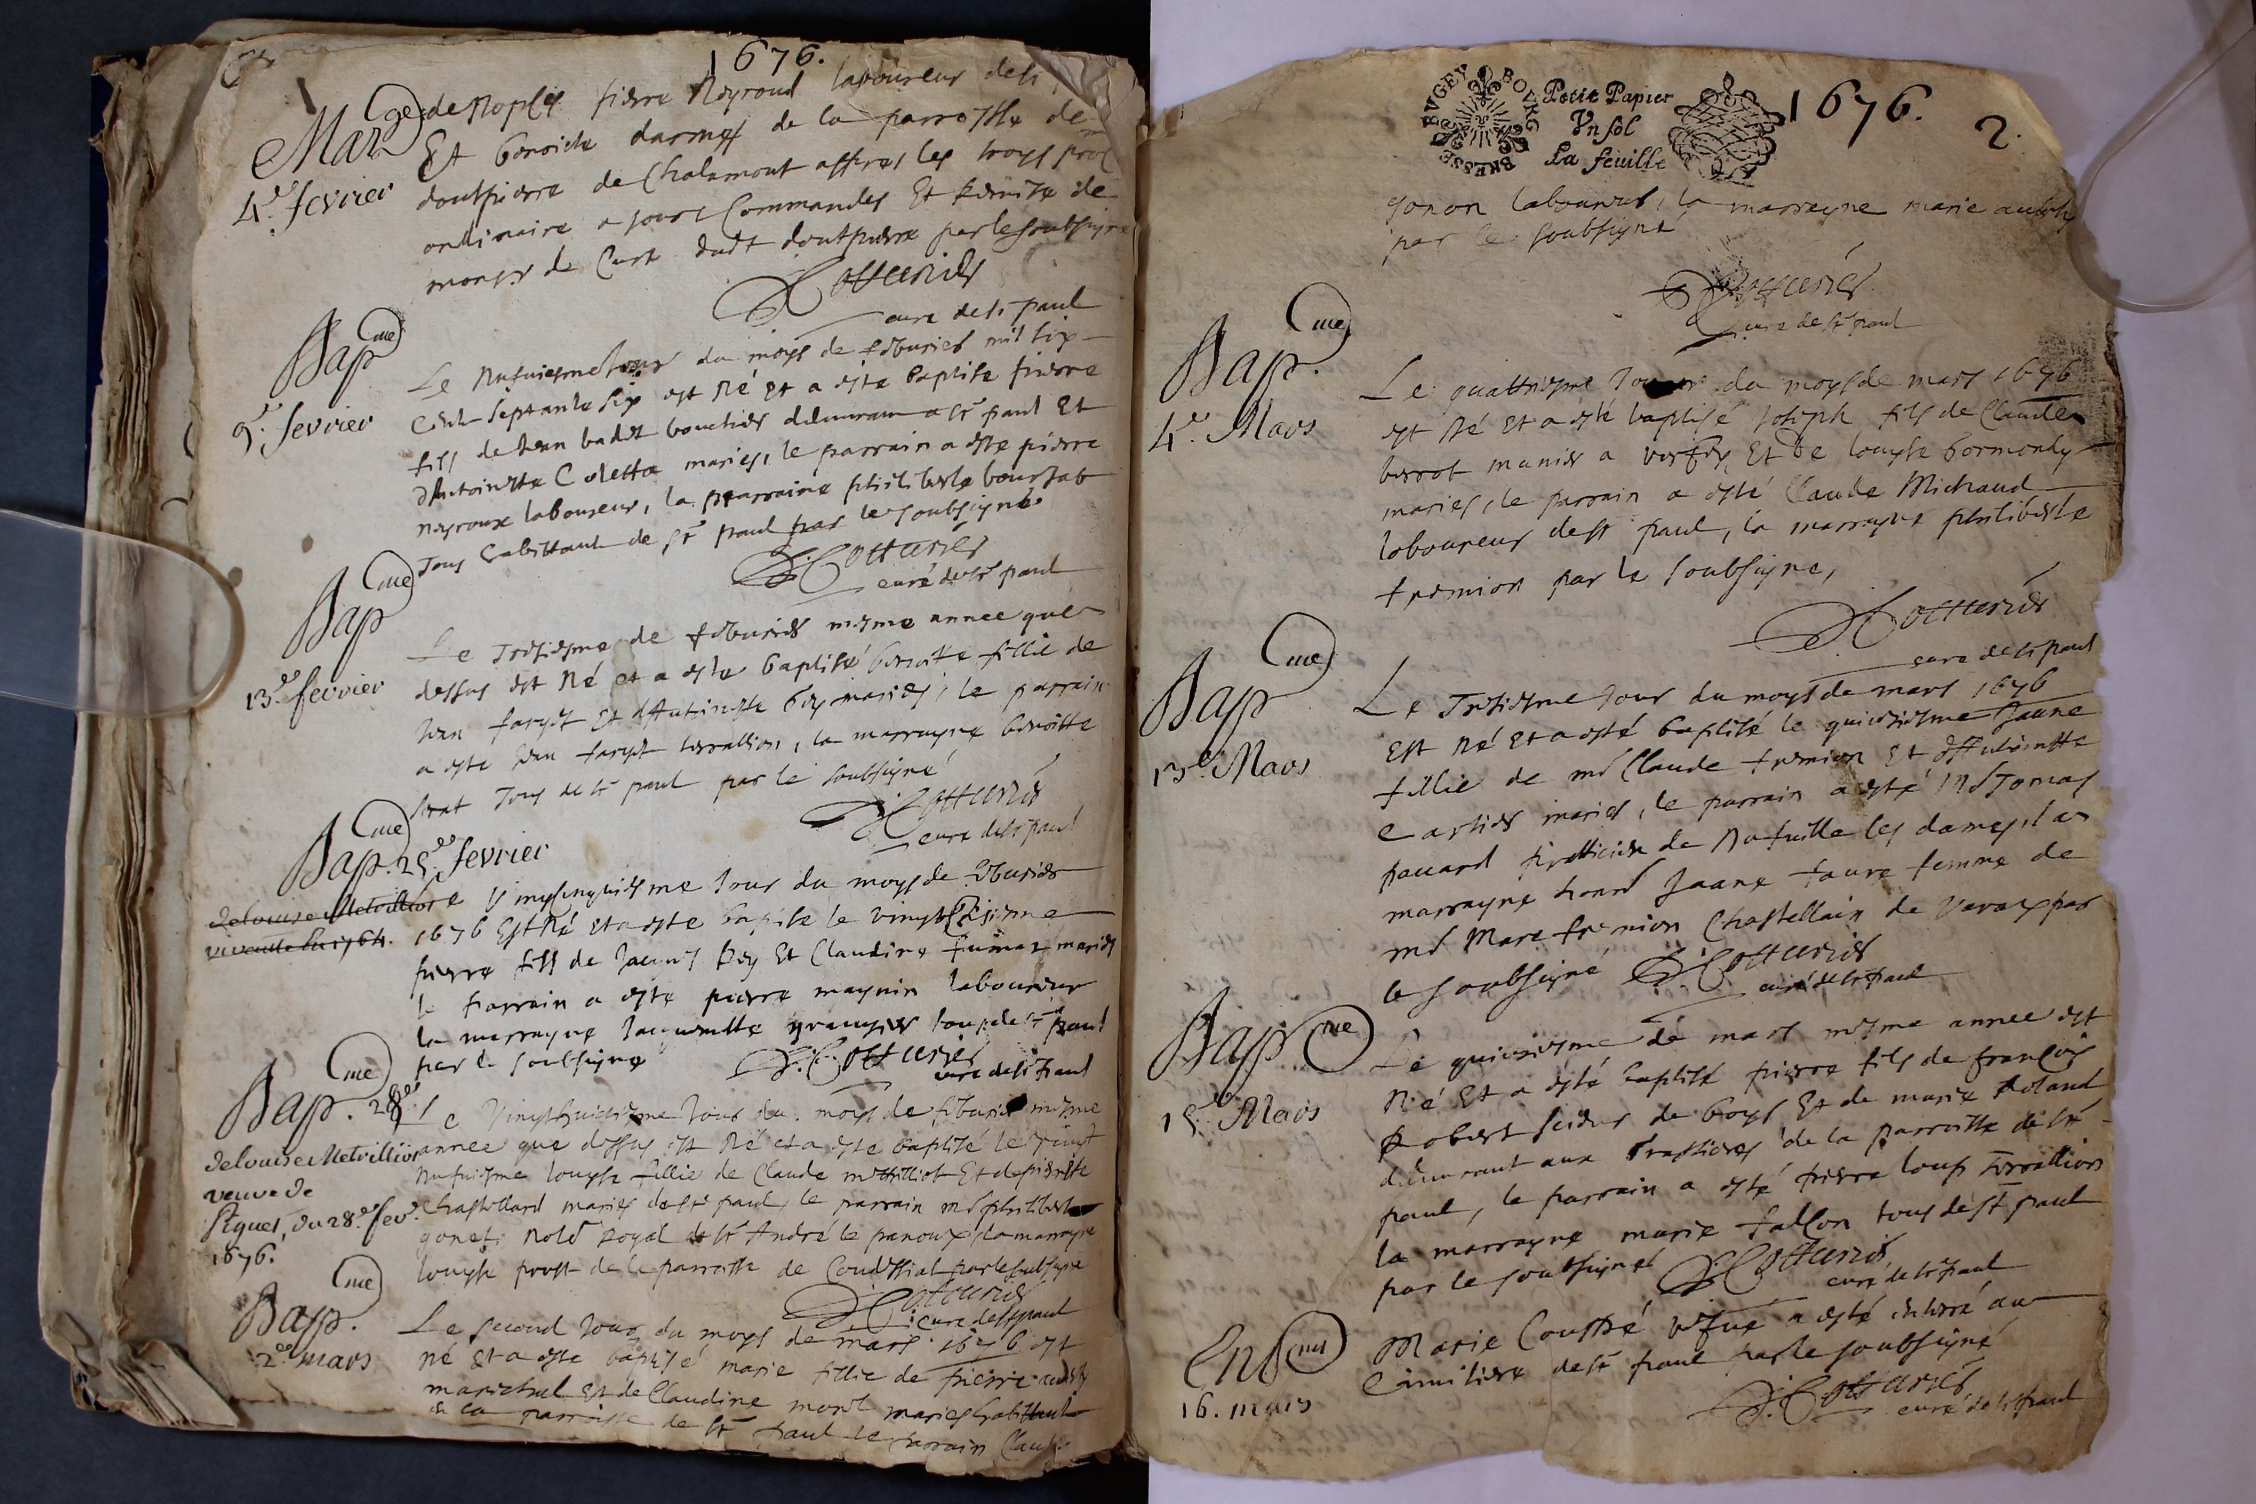 1676.
Mar ge de nopces pierre Reyroud laboureur de st
4e. fevrier
Et benoiste darmes de la parroisse de
domspierre de Chalamont appres les troys proc
ordinaire a jours Commandes Et permise de
monsr de Cure dudt domspierre par le soubsigne
J Cotturier
cure de st paul
Bap me
9e. fevrier
Le nufuiesme Jour du moys de febvrier mil six
Cent septante six est Né et a este baptise pierre
fils de Jean badet bouchier demurant a st paul Et
d'Antoinette Coletta maries, le parrain a este pierre
reyroux laboureur, la marraine philiberte boursat
Tous habittant de st paul par le soubsigné
J. Cotturier
curé de st paul
Bap me
13e fevrier
Le Tresiesme de febvrier mesme annee que
dessus est Né et a este baptisé benoitte fillie de
Jean farget Et d'Antoinette bey maries, le parrain
a este Jean farget terrallion, la marrayne benoitte
serat Tous de st paul par le soubsigné
J. Cotturier
cure de st paul
Bap me. 25e fevrier
de louise Metrillior
veuve
Le vingtcinquiesme Jour du moys de febvrier
1676 Est Né et a este baptise le vingt sisiesme
pierre fils de Jacques Rey Et Claudine fumat maries
le parrain a este pierre maynin laboureur
la marrayne Jacquemette grangier tous de st paul
par le soubsigne J. Cotturier
cure de st paul
Bap me. 28e
de louise Metrillior
veuve de
Piguet, du 28e. fevr.
1676.
Le Vingthuictiesme Jour du moys de febvrier mesme
annee que dessus est Né et a este baptisé le vingt
nufuiesme louyse fillie de Claude metrilliot Et de pierrette
Chastellard maries de st paul, le parrain me philibert
gonet, Notre Royal de st André le panoux, la marrayne
louyse prost de la parroisse de Condessiat par le soubsigne
J. Cotturier
cure de st paul
Bap me.
2e. mars
Le second Jour du moys de mars 1676 est
né Et a este baptisé marie fillie de pierre
marechal Et de Claudine morel maries habittant
de la parroisse de st paul le parrain Claude
BRESSE BVGEY BOVRG
Petit Papier
Vn sol
La feuille
1676.
2.
gonon laboureur, la marrayne marie
par le soubsigné
J Cotturier
cure de st paul
Bap. me
4e. Mars
Le quattriesme Jour du moys de mars 1676
est Né Et a esté baptisé Joseph fils de Claude
berrot munier a Et de louyse bormonly
maries, le parrain a esté Claude Michaud
laboureur de st paul, la marrayne philiberte
fremion par le soubsigne,
J Cotturier
cure de st paul
Bap me
13e. Mars
Le Tresiesme Jour du moys de mars 1676
Est Né Et a esté baptisé le quinsiesme Jeane
fillie de me Claude fremion Et d'Antoinette
Cartier maries, le parrain a esté me Tomas
pauard pratticien de Nufuille les dames, la
marrayne honne Jeane faure femme de
me Marc fremion Chastellain de Varax par
le soubsigné J. Cotturier
curé de st paul
Bap me
15e. Mars
Le quinsiesme de mars mesme annee est
Né Et a esté baptisé pierre fils de françois
Robert scieur de boys Et de marie Roland
demurant aux brassieres de la parroisse de st
paul, le parrain a esté pierre loup terrallion
la marrayne marie fallon tous de st paul
par le soubsigné J. Cotturier
curé de st paul
Ens mt
16. mars
Marie Coussé vefue a esté enterré au
Cimitiere de st paul par le soubsigné
J. Cotturier
curé de st paul